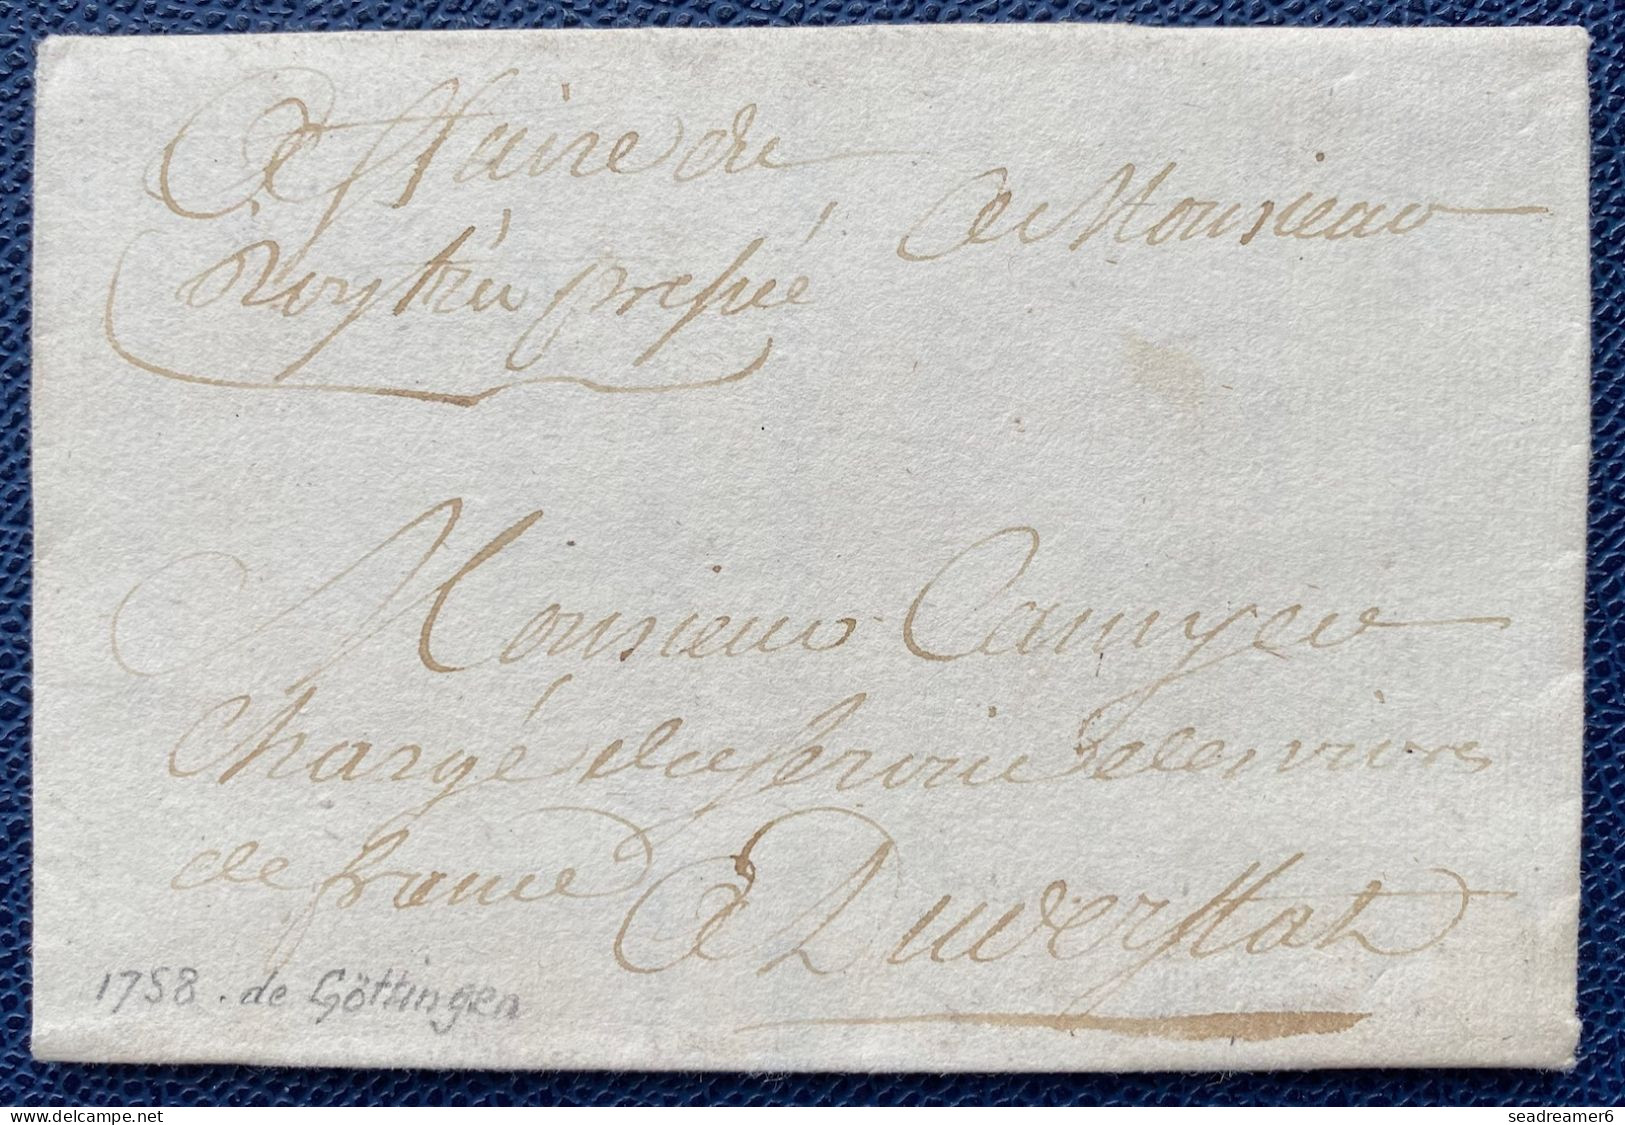 Affaire du
Roy trés pressée
A Monsieur
Monsieur Camyer
Chargé du service des vivres
de france A Duderstat
1758. de Göttingen
seadreamer6
delcampe.net